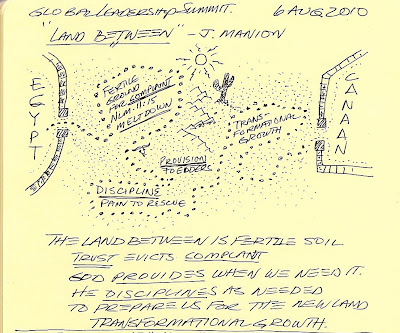 GLOBAL LEADERSHIP SUMMIT. 6 AUG 2010
"LAND BETWEEN" - J. MANION
EGYPT
FERTILE
GROUND
FOR COMPLAINT
NUM. 11:15
MELTDOWN
CANAAN
TRANS-
FORMATIONAL
GROWTH
PROVISION
DISCIPLINE
PAIN TO RESCUE
THE LAND BETWEEN IS FERTILE SOIL
TRUST EVICTS COMPLAINT
GOD PROVIDES WHEN WE NEED IT.
HE DISCIPLINES AS NEEDED
TO PREPARE US FOR THE NEW LAND
TRANSFORMATIONAL GROWTH.